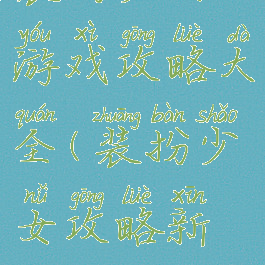 yóu xì gōng lüè dà
游戏攻略大
quán zhuāng bàn shǎo
全(装扮少
nǚ gōng lüè xīn
女攻略新